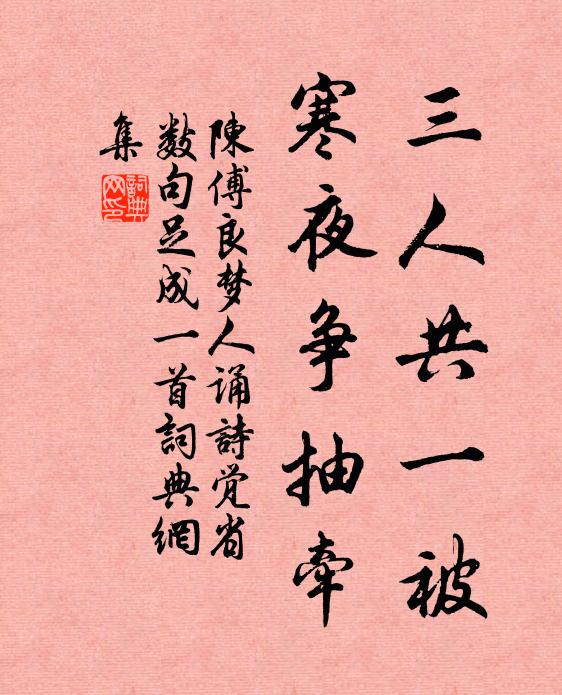 三人共一被
寒夜争抽牽
陳傅良梦人诵詩觉省
数句足成一首詞典網
集
詞典
网印